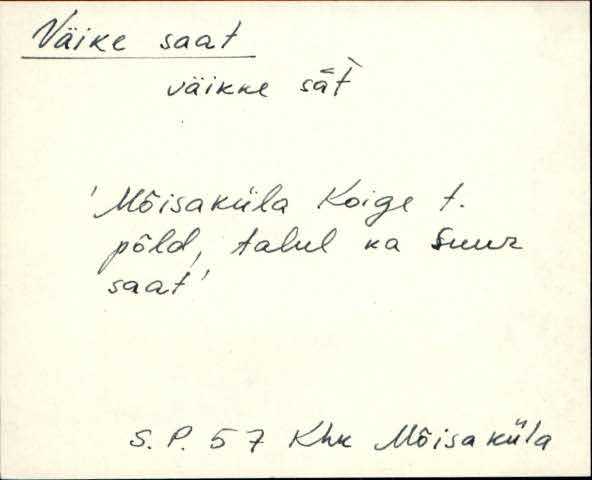 Väike saat
väikke sāt̀
'Mõisaküla Koige t.
põld, talul ka Suur
saat'
S. P. 57 Khk Mõisaküla